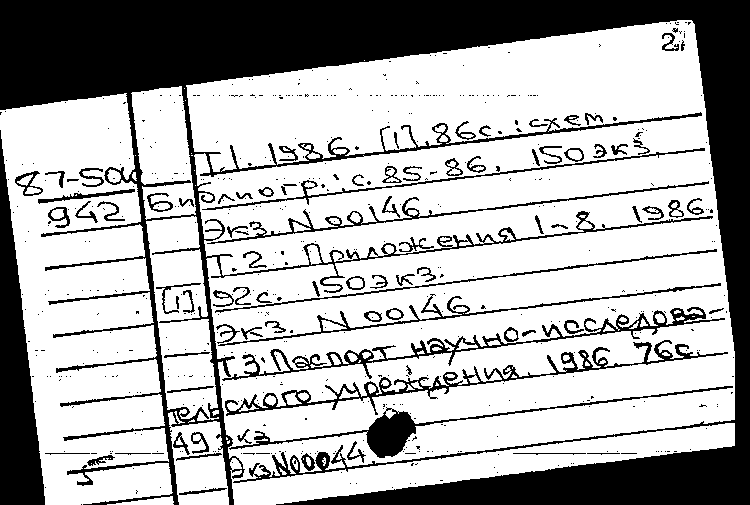 2
Т.1. 1986. [1], 86с. : схем.
87-5
942
Библиогр.: с. 85-86. 150 экз.
Экз. N 00146.
Т.2: Приложения 1-8. 1986.
[1], 92с. 150 экз.
Экз. N 00146.
Т.3: Паспорт научно-исследова-
тельского учреждения. 1986. 76с.
49 экз
Экз. N00044.
5